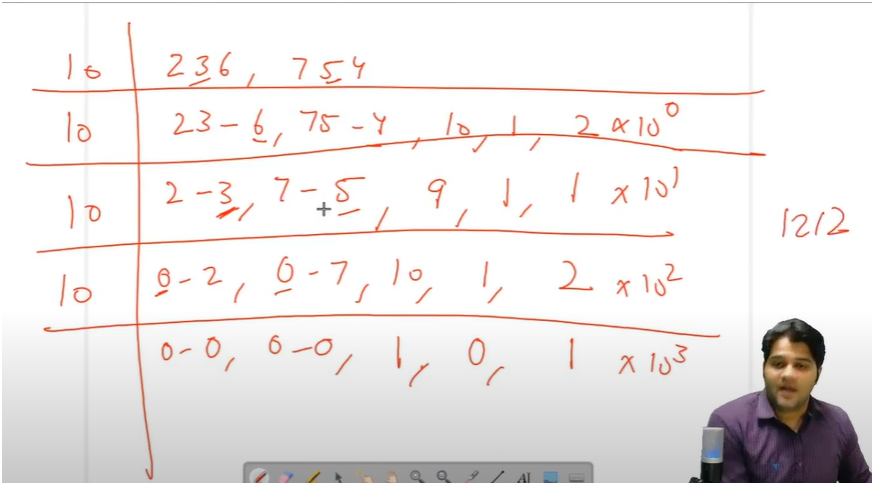 10 236, 754
10 23-6, 75-4, 10, 1, 2 × 10^0
10 2-3, 7-5, 9, 1, 1 × 10^1
1212
10 0-2, 0-7, 10, 1, 2 × 10^2
0-0, 0-0, 1, 0, 1 × 10^3
AI